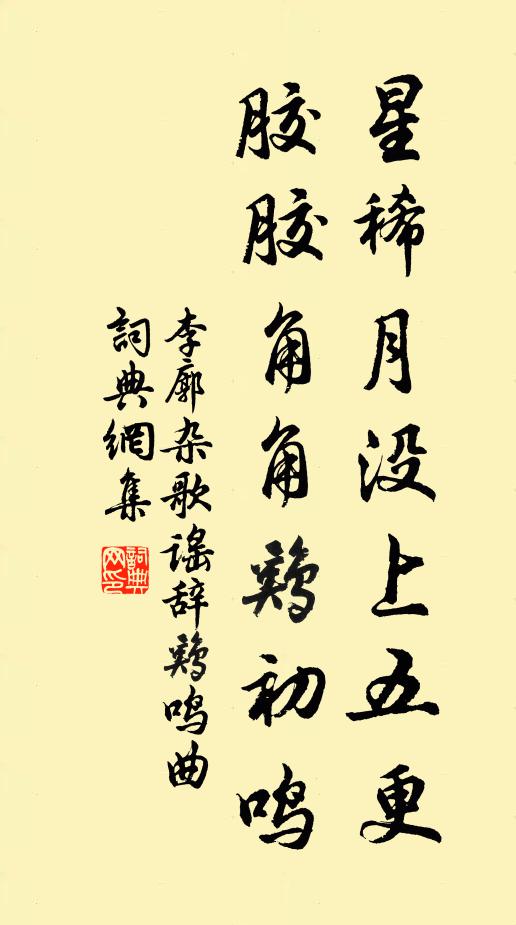 星稀月没上五更
胶胶角角鷄初鸣
李廓杂歌谣辞鷄鸣曲
詞典網集
詞典网印